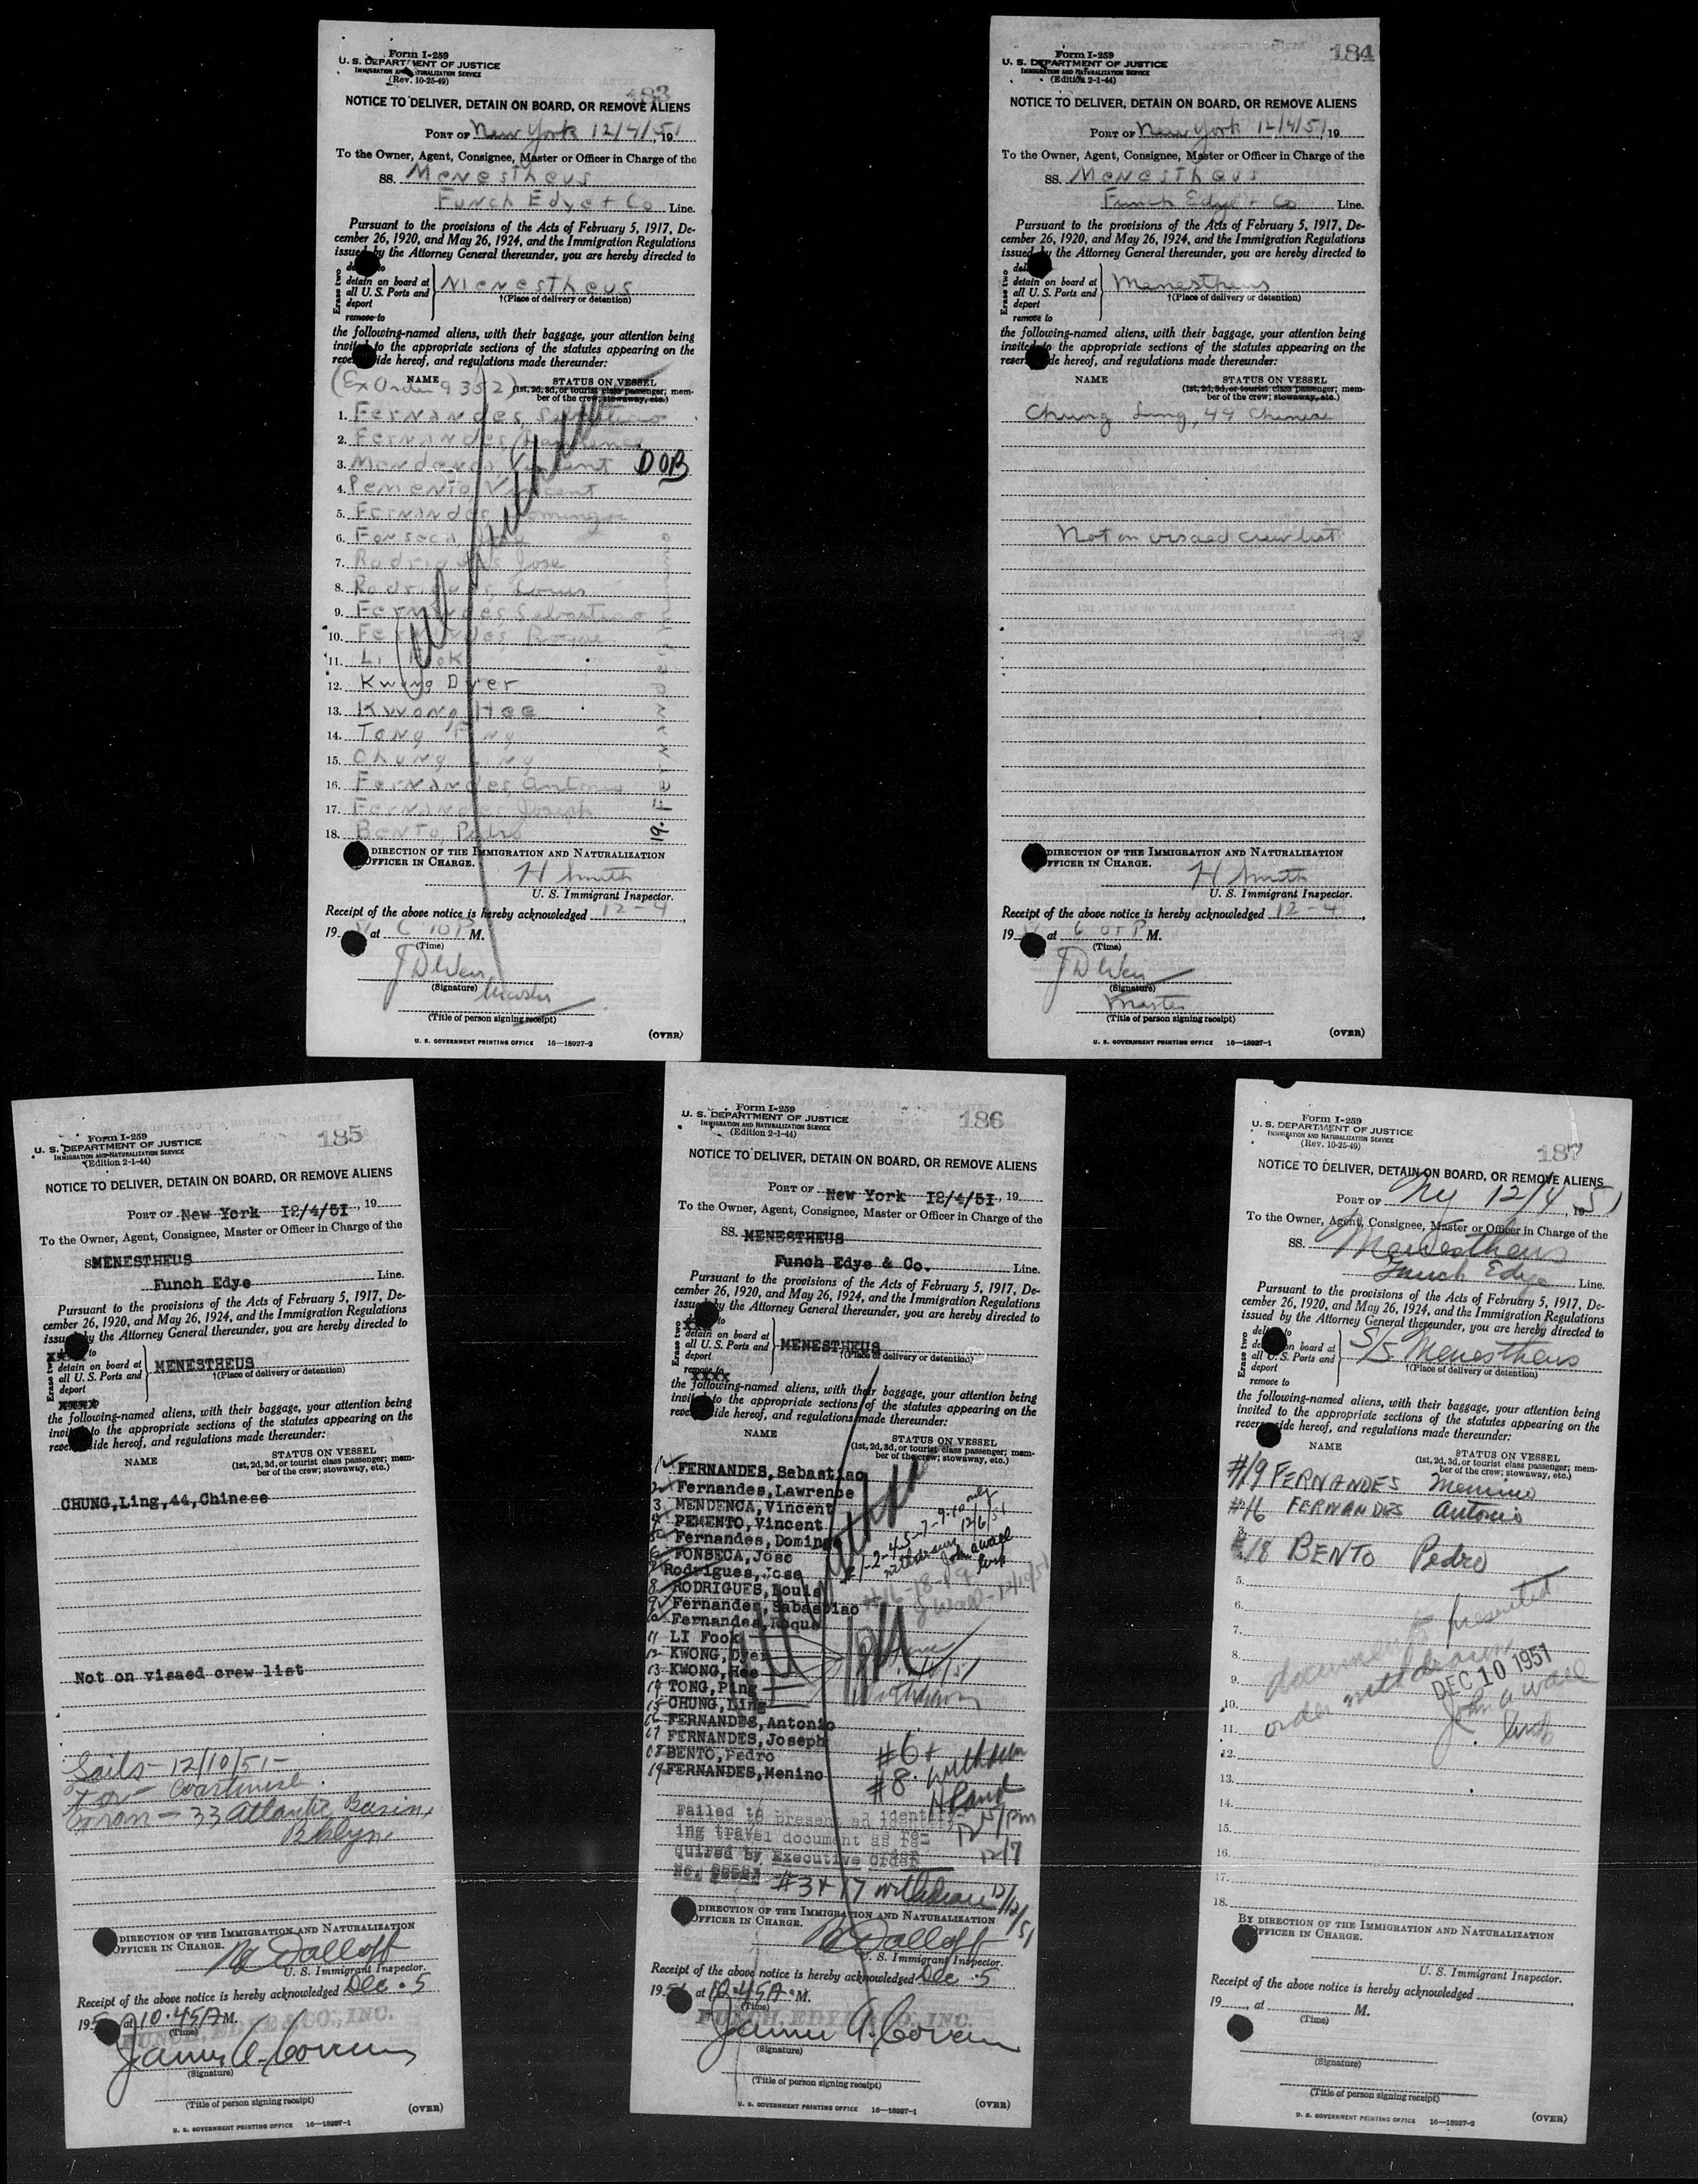 183
Form I-259
U. S. DEPARTMENT OF JUSTICE
IMMIGRATION AND NATURALIZATION SERVICE
(Rev. 10-25-49)
NOTICE TO DELIVER, DETAIN ON BOARD, OR REMOVE ALIENS
PORT OF New York 12/4/51, 19
To the Owner, Agent, Consignee, Master or Officer in Charge of the
SS. Menestheus
Funch Edye + Co Line.
Pursuant to the provisions of the Acts of February 5, 1917, De-
cember 26, 1920, and May 26, 1924, and the Immigration Regulations
issued by the Attorney General thereunder, you are hereby directed to
Erase two
to
detain on board at
all U. S. Ports and
deport
remove to
Menestheus
†(Place of delivery or detention)
the following-named aliens, with their baggage, your attention being
invited to the appropriate sections of the statutes appearing on the
reverse side hereof, and regulations made thereunder:
(Ex Order 9352)
NAME
STATUS ON VESSEL
(1st, 2d, 3d, or tourist class passenger; mem-
ber of the crew; stowaway, etc.)
1. Fernandes, Sebastiao
2. Fernandes, Lawrence
3. Mendenca, Vincent DOB
4. Pemento, Vincent
5. Fernandes, Domingo
6. Fonseca, Jose
7. Rodrigues Jose
8. Rodrigues, Louis
9. Fernandes, Sebastiao
10. Fernandes, Roque
11. Li Fook
12. Kwong Dyer
13. Kwong Hee
14. Tong Ping
15. Chung Ling
16. Fernandes, Antonio
17. Fernandes, Joseph
18. Bento, Pedro
19. Fernandes
DIRECTION OF THE IMMIGRATION AND NATURALIZATION
OFFICER IN CHARGE.
H Smith
U. S. Immigrant Inspector.
Receipt of the above notice is hereby acknowledged 12-4,
19 51 at 6 10 P M.
(Time)
(Signature) Master
(Title of person signing receipt)
(OVER)
U. S. GOVERNMENT PRINTING OFFICE 16—18927-2
184
Form I-259
U. S. DEPARTMENT OF JUSTICE
IMMIGRATION AND NATURALIZATION SERVICE
(Edition 2-1-44)
NOTICE TO DELIVER, DETAIN ON BOARD, OR REMOVE ALIENS
PORT OF New York 12/4/51, 19
To the Owner, Agent, Consignee, Master or Officer in Charge of the
SS. Menestheus
Funch Edye + Co Line.
Pursuant to the provisions of the Acts of February 5, 1917, De-
cember 26, 1920, and May 26, 1924, and the Immigration Regulations
issued by the Attorney General thereunder, you are hereby directed to
Erase two
detain on board at
all U. S. Ports and
deport
remove to
Menestheus
†(Place of delivery or detention)
the following-named aliens, with their baggage, your attention being
invited to the appropriate sections of the statutes appearing on the
reverse side hereof, and regulations made thereunder:
NAME
STATUS ON VESSEL
(1st, 2d, 3d, or tourist class passenger; mem-
ber of the crew; stowaway, etc.)
Chung Ling, 44 Chinese
Not on visaed crew list
DIRECTION OF THE IMMIGRATION AND NATURALIZATION
OFFICER IN CHARGE.
H Smith
U. S. Immigrant Inspector.
Receipt of the above notice is hereby acknowledged 12-4,
19 51 at 6 05 P M.
(Time)
(Signature)
Master
(Title of person signing receipt)
(OVER)
U. S. GOVERNMENT PRINTING OFFICE 16—18927-1
185
Form I-259
U. S. DEPARTMENT OF JUSTICE
IMMIGRATION AND NATURALIZATION SERVICE
(Edition 2-1-44)
NOTICE TO DELIVER, DETAIN ON BOARD, OR REMOVE ALIENS
PORT OF New York I2/4/5I, 19
To the Owner, Agent, Consignee, Master or Officer in Charge of the
SMENESTHEUS
Funch Edye Line.
Pursuant to the provisions of the Acts of February 5, 1917, De-
cember 26, 1920, and May 26, 1924, and the Immigration Regulations
issued by the Attorney General thereunder, you are hereby directed to
Erase two
to
detain on board at
all U. S. Ports and
deport
xxxx
MENESTHEUS
†(Place of delivery or detention)
the following-named aliens, with their baggage, your attention being
invited to the appropriate sections of the statutes appearing on the
reverse side hereof, and regulations made thereunder:
NAME
STATUS ON VESSEL
(1st, 2d, 3d, or tourist class passenger; mem-
ber of the crew; stowaway, etc.)
CHUNG,Ling,44,Chinese
Not on visaed crew list
Sails - 12/10/51 -
For - Coastwise.
From - 33 Atlantic Basin,
Bklyn.
DIRECTION OF THE IMMIGRATION AND NATURALIZATION
OFFICER IN CHARGE.
Dalloff
U. S. Immigrant Inspector.
Receipt of the above notice is hereby acknowledged Dec. 5
195 at 10.45A M.
(Time)
FUNCH, EDYE & CO., INC.
(Signature)
(Title of person signing receipt)
(OVER)
U. S. GOVERNMENT PRINTING OFFICE 16—18927-1
186
Form I-259
U. S. DEPARTMENT OF JUSTICE
IMMIGRATION AND NATURALIZATION SERVICE
(Edition 2-1-44)
NOTICE TO DELIVER, DETAIN ON BOARD, OR REMOVE ALIENS
PORT OF New York I2/4/5I, 19
To the Owner, Agent, Consignee, Master or Officer in Charge of the
SS. MENESTHEUS
Funch Edye & Co. Line.
Pursuant to the provisions of the Acts of February 5, 1917, De-
cember 26, 1920, and May 26, 1924, and the Immigration Regulations
issued by the Attorney General thereunder, you are hereby directed to
Erase two
to
detain on board at
all U. S. Ports and
deport
remove to
xxxx
MENESTHEUS
†(Place of delivery or detention)
the following-named aliens, with their baggage, your attention being
invited to the appropriate sections of the statutes appearing on the
reverse side hereof, and regulations made thereunder:
NAME
STATUS ON VESSEL
(1st, 2d, 3d, or tourist class passenger; mem-
ber of the crew; stowaway, etc.)
1 FERNANDES, Sebastiao
2 Fernandes, Lawrence
3 MENDENCA, Vincent
4 PEMENTO, Vincent
5 Fernandes, Domingo
6 FONSECA, Jose
7 Rodrigues, Jose
8 RODRIGUES, Louis
9 Fernandes, Sabastiao
10 Fernandes, Roque
11 LI Fook
12 KWONG, Dyer
13 KWONG, Hee
14 TONG, Ping
15 CHUNG, Ling
16 FERNANDES, Antonio
17 FERNANDES, Joseph
18 BENTO, Pedro
19 FERNANDES, Menino
#1-2-4-5-7-9-10 only
withdrawn 12/6/51
John A Wall
#16-18-19
J Wall - 12/10/51
Withdrawn
#6 +
#8. Withdrawn
12/7
Failed to present an identify-
ing travel document as re-
quired by Executive Order
No.
#3 + 17 withdrawn 12/12/51
DIRECTION OF THE IMMIGRATION AND NATURALIZATION
OFFICER IN CHARGE.
Dalloff
U. S. Immigrant Inspector.
Receipt of the above notice is hereby acknowledged Dec. 5
195 at 10.45A. M.
(Time)
FUNCH, EDYE & CO., INC.
(Signature)
(Title of person signing receipt)
(OVER)
U. S. GOVERNMENT PRINTING OFFICE 16—18927-1
187
Form I-259
U. S. DEPARTMENT OF JUSTICE
IMMIGRATION AND NATURALIZATION SERVICE
(Rev. 10-25-49)
NOTICE TO DELIVER, DETAIN ON BOARD, OR REMOVE ALIENS
PORT OF Ny 12/4, 1951
To the Owner, Agent, Consignee, Master or Officer in Charge of the
SS. Menestheus
Funch Edye Line.
Pursuant to the provisions of the Acts of February 5, 1917, De-
cember 26, 1920, and May 26, 1924, and the Immigration Regulations
issued by the Attorney General thereunder, you are hereby directed to
Erase two
to
on board at
all U. S. Ports and
deport
remove to
S/S Menestheus
†(Place of delivery or detention)
the following-named aliens, with their baggage, your attention being
invited to the appropriate sections of the statutes appearing on the
reverse side hereof, and regulations made thereunder:
NAME
STATUS ON VESSEL
(1st, 2d, 3d, or tourist class passenger; mem-
ber of the crew; stowaway, etc.)
#19 FERNANDES Menino
#16 FERNANDES Antonio
3.
#18 BENTO Pedro
5.
6.
7.
8.
9.
10.
11.
12.
13.
14.
15.
16.
17.
18.
documents presented
order withdrawn
DEC 10 1951
John A Wall
BY DIRECTION OF THE IMMIGRATION AND NATURALIZATION
OFFICER IN CHARGE.
U. S. Immigrant Inspector.
Receipt of the above notice is hereby acknowledged
19 , at M.
(Time)
(Signature)
(Title of person signing receipt)
(OVER)
U. S. GOVERNMENT PRINTING OFFICE 16—18927-2